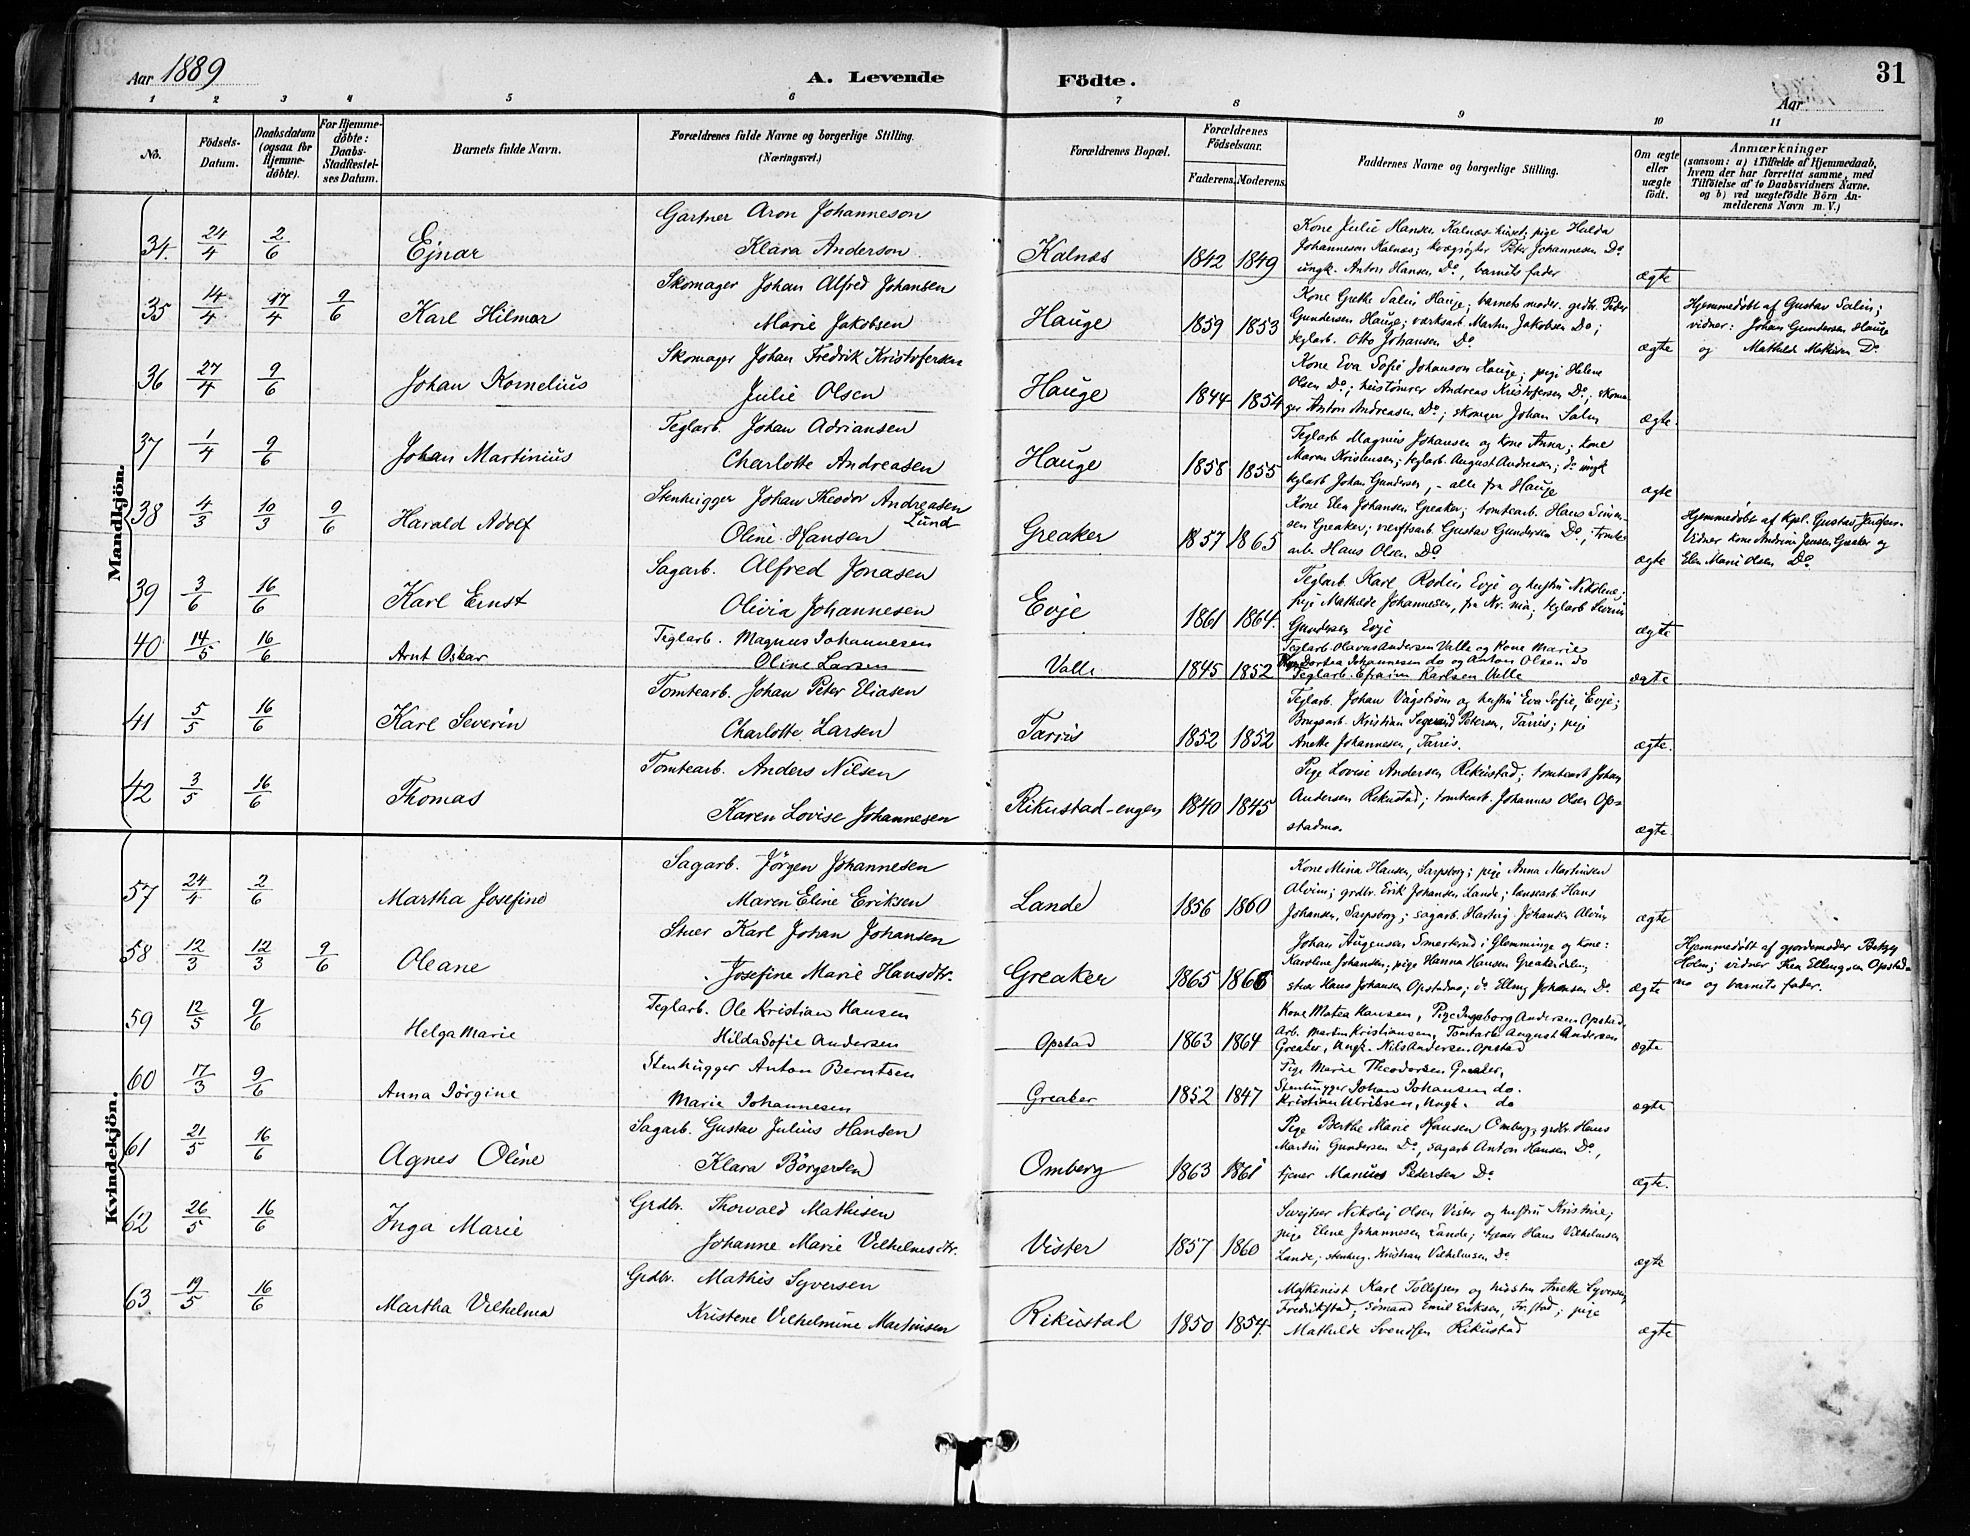 Aar 1889
A. Levende Fødte.
31
Aar
1 2 3 4 5 6 7 8 9 10 11
No.
Fødsels-Datum.
Daabsdatum (ogsaa for Hjemme-døbte).
For Hjemme-døbte: Daabs-Stadfæstel-ses Datum.
Barnets fulde Navn.
Forældrenes fulde Navne og borgerlige Stilling. (Næringsvei.)
Forældrenes Bopæl.
Forældrenes Fødselsaar.
Faderens. Moderens.
Faddernes Navne og borgerlige Stilling.
Om ægte eller uægte født.
Anmærkninger
(saasom: a) i Tilfælde af Hjemmedaab, hvem der har forrettet samme, med Tilføielse af to Daabsvidners Navne. og b) ved uægtefødte Børn Anmelderens Navn m. V.)
Mandkjøn.
34. 24/4 2/6 Ejnar
Gartner Aron Johanneson
Klara Anderson
Kalnæs 1842 1849
Kone Julie Hansen Kalnæs huset; pige Hulda
Johanneson Kalnæs; kvægrøgter Peter Johannesen Do
ungk. Anton Hansen Do, barnets fader
ægte
35 14/4 17/4 9/6 Karl Hilmar
Skomager Johan Alfred Johansen
Marie Jakobsen
Hauge 1859 1853
Kone Grethe Salin Hauge; barnets moder. grdbr. Peter
Gundersen Hauge; værksarb. Martin Jakobsen Do;
teglarb. Otto Johansen Do
ægte
Hjemmedøbt af Gustav Salin;
vidner: Johan Gundersen Hauge
og Mathilde Mathisen Do
36 27/4 9/6 Johan Kornelius
Skomager Johan Fredrik Kristofersen
Julie Olsen
Hauge 1844 1854
Kone Eva Sofie Johanson Hauge; pige Helene
Olsen Do; hustømrer Andreas Kristofersen Do; skoma-
ger Anton Andreasen Do; skomgr Johan Salin
ægte.
37 1/4 9/6 Johan Martinius
Teglarb. Johan Adriansen
Charlotte Andreasen
Hauge 1858 1855
Teglarb Magnus Johansen og kone Anna; kone
Maren Kristensen; teglarb. August Andersen; do ungk
teglarb Johan Gundersen, - alle fra Hauge
ægte
38 4/3 10/3 9/6 Harald Adolf
Stenhugger Johan Theodor Andreasen
Lund
Oline Hansen
Greaker 1857 1865
Kone Elen Johansen Greaker; tomtearb. Hans Siver-
sen Greaker; værftsarb Gustav Gundersen Do, tomte-
arb. Hans Olsen Do
ægte
Hjemmedøbt af Kpl. Gustav Jensen.
Vidner kone Andrine Jensen Greaker og
Elen Marie Olsen Do
39 3/6 16/6 Karl Ernst
Sagarb. Alfred Jonasen
Olivia Johannesen
Evje 1861 1864.
Teglarb. Karl Rodin Evje og hustru Nikoline;
pige Mathilde Johannesen, teglarb Severin
Gundersen Evje
ægte
40 14/5 16/6 Arnt Oskar
Teglarb. Magnus Johannesen
Oline Larsen
Valle 1845 1852
Teglarb. Olavus Andersen Valle og Kone Marie
Dortea Johannesen do og Anton Olsen do
Teglarb. Efraim Karlsen Valle
ægte
41 5/5 16/6 Karl Severin
Tomtearb. Johan Peter Eliasen
Charlotte Larsen
Tarris 1852 1852
Teglarb. Johan Vågstrøm og hustru Eva Sofie, Evje;
Brugsarb. Kristian Petersen, Tarris; pige
Anette Johannesen, Tarris.
ægte.
42 3/5 16/6 Thomas
Tomtearb. Anders Nilsen
Karen Lovise Johannesen
Rikustad-engen 1840 1845
Pige Lovise Andersen Rikustad; tomtearb Johan
Andersen Rikustad; tomtearb. Johannes Olsen Op-
stadmo.
ægte.
Kvindekjøn.
57 24/4 2/6 Martha Josefine
Sagarb. Jørgen Johannesen
Maren Eline Eriksen
Lande 1856 1860
Kone Mina Hansen, Sarpsborg; pige Anna Martinsen
Alvim; grdbr. Erik Johansen Lande; lænsearb Hans
Johansen, Sarpsborg; sagarb. Hartvig Johansen Alvim
ægte
58 12/3 12/3 9/6 Oleane
Stuer Karl Johan Johansen
Josefine Marie Hansdtr.
Greaker 1865 1866
Johan Augensen Smertnd i Glemminge og kone:
Karoline Johansen; pige Hanna Hansen Greakerdalen,
stuer Hans Johansen Opstadmo; do Elling Johansen Do.
ægte
Hjemmedøbt af gjordemoder Betzy
Holm; vidner Thea Ellingsen Opstad-
mo og barnets fader.
59 12/5 9/6 Helga Marie
Teglarb. Ole Kristian Hansen
Hilda Sofie Andersen
Opstad 1863 1864
Kone Matea Hansen, Pige Ingeborg Andersen Opstad,
Arb. Martin Kristiansen, Tomtarb. August Andersen
Greaker, Ungk. Nils Andersen Opstad
ægte
60 17/3 9/6 Anna Jørgine
Stenhugger Anton Berntsen
Marie Johannesen
Greaker 1852 1847
Pige Marie Theodorsen, Greaker,
Stenhugger Johan Johansen do.
Kristian Ulriksen, Ungk. do
ægte
61 21/5 16/6 Agnes Oline
Sagarb. Gustav Julius Hansen
Klara Børgersen
Omberg 1863 1861
Pige Berthe Marie Hansen Omberg, grdbr. Hans
Martin Gundersen Do, sagarb Anton Hansen Do,
tjener Marius Pedersen Do
ægte.
62 26/5 16/6 Inga Marie
Grdbr. Thorvald Mathisen
Johanne Marie Vilhelmsdtr.
Vister 1857 1860
Sveitser Nikolaj Olsen Vister og hustru Kristine;
pige Elene Johannesen Lande; tjener Hans Vilhelmsen
Lande; stenhug. Kristian Vilhelmsen Do
ægte
63 19/5 16/6 Martha Vilhelma
Grdbr. Mathis Syversen
Kristene Vilhelmine Martinsen
Rikustad 1850 1854.
Maskinist Karl Tollefsen og hustru Anette Syversen
Fredrikstad; sømand Emil Eriksen, Fr.stad; pige
Mathilde Svendsen Rikustad
ægte